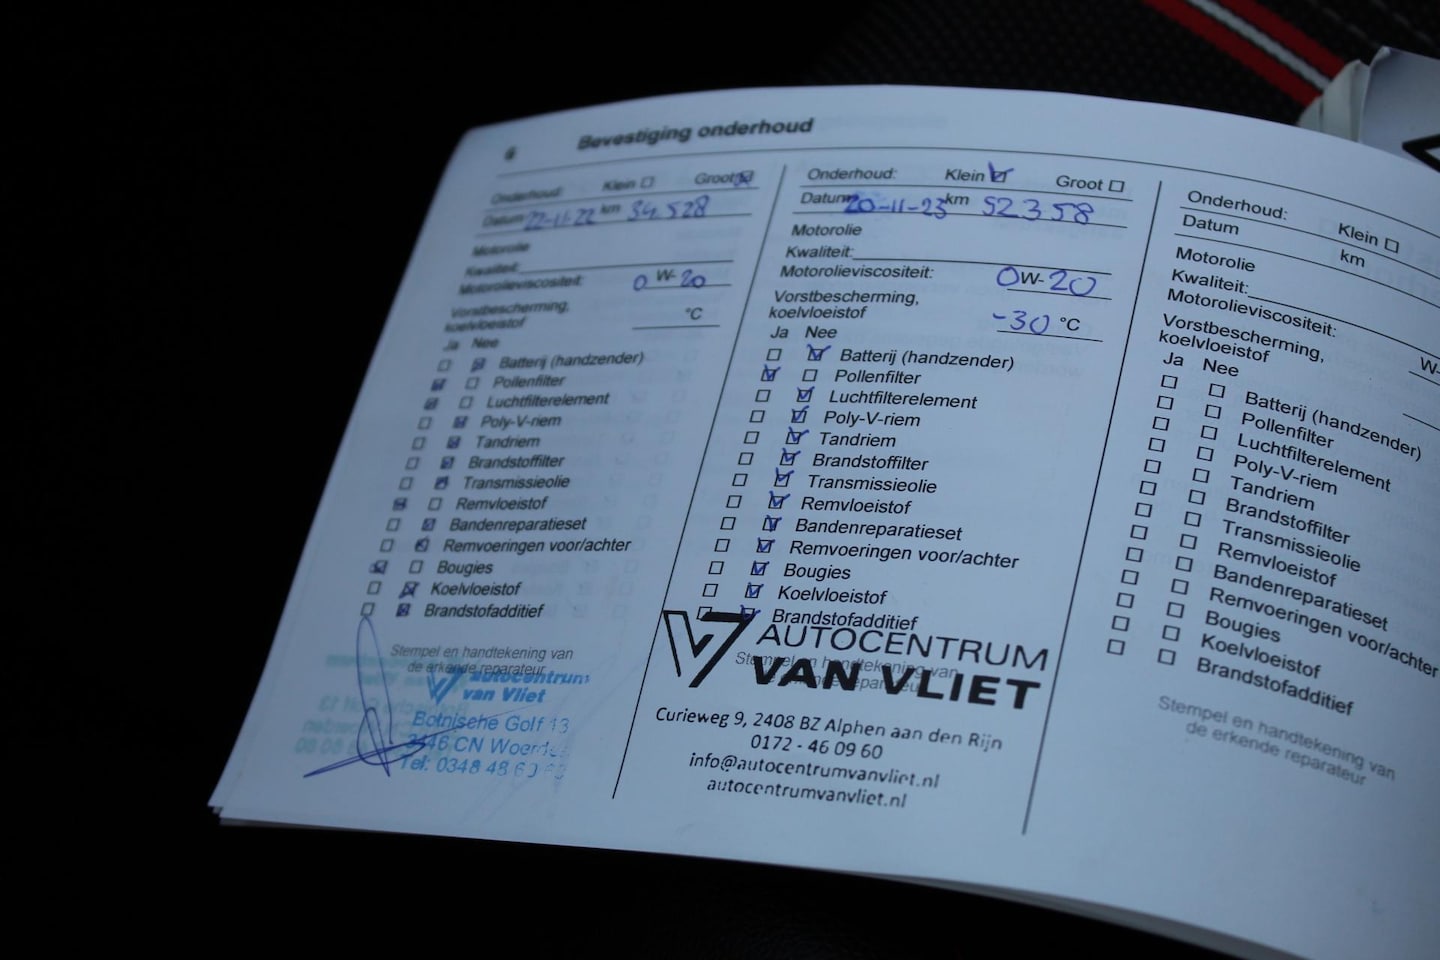 6 Bevestiging onderhoud
Onderhoud: Klein Groot
Datum 22-11-22 km 34.528
Motorolie
Kwaliteit:
Motorolieviscositeit: 0 W- 20
Vorstbescherming,
koelvloeistof °C
Ja Nee
Batterij (handzender)
Pollenfilter
Luchtfilterelement
Poly-V-riem
Tandriem
Brandstoffilter
Transmissieolie
Remvloeistof
Bandenreparatieset
Remvoeringen voor/achter
Bougies
Koelvloeistof
Brandstofadditief
Stempel en handtekening van
de erkende reparateur
autocentrum
van Vliet
Botnische Golf 13
3446 CN Woerden
Tel: 0348 48 60
Onderhoud: Klein Groot
Datum 20-11-23 km 52.358
Motorolie
Kwaliteit:
Motorolieviscositeit: 0 W- 20
Vorstbescherming,
koelvloeistof -30 °C
Ja Nee
Batterij (handzender)
Pollenfilter
Luchtfilterelement
Poly-V-riem
Tandriem
Brandstoffilter
Transmissieolie
Remvloeistof
Bandenreparatieset
Remvoeringen voor/achter
Bougies
Koelvloeistof
Brandstofadditief
Stempel en handtekening van
de erkende reparateur
AUTOCENTRUM
VAN VLIET
Curieweg 9, 2408 BZ Alphen aan den Rijn
0172 - 46 09 60
info@autocentrumvanvliet.nl
autocentrumvanvliet.nl
Onderhoud: Klein
Datum km
Motorolie
Kwaliteit:
Motorolieviscositeit: W-
Vorstbescherming,
koelvloeistof
Ja Nee
Batterij (handzender)
Pollenfilter
Luchtfilterelement
Poly-V-riem
Tandriem
Brandstoffilter
Transmissieolie
Remvloeistof
Bandenreparatieset
Remvoeringen voor/achter
Bougies
Koelvloeistof
Brandstofadditief
Stempel en handtekening van
de erkende reparateur